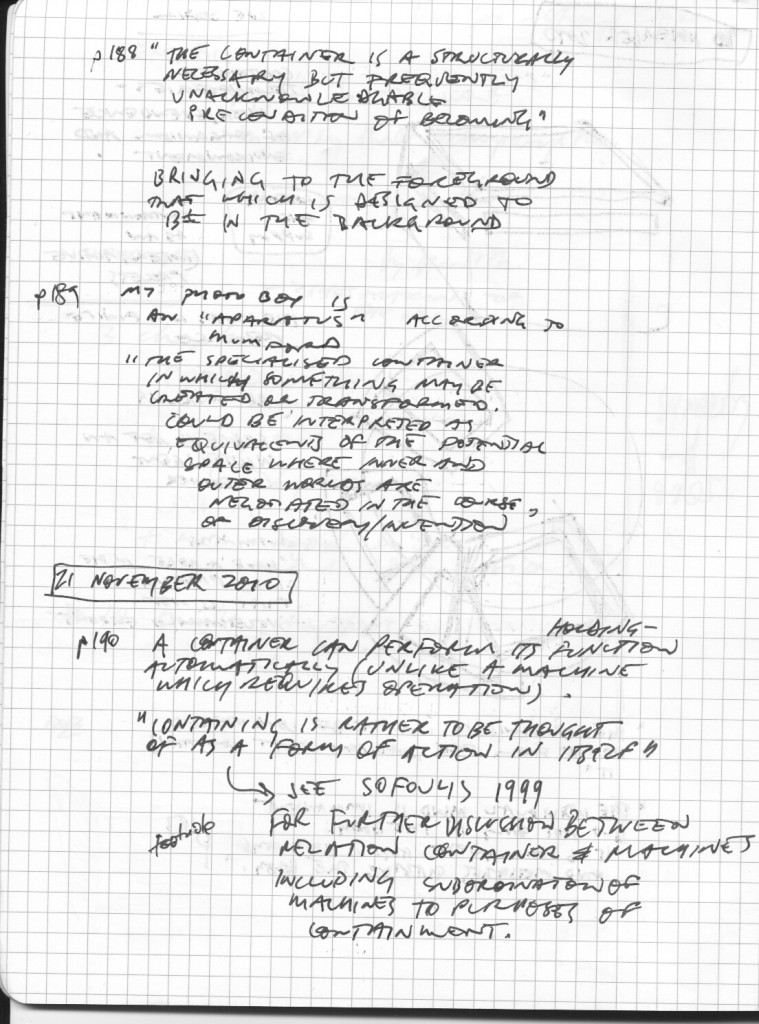 p188 "THE CONTAINER IS A STRUCTURALLY
NECESSARY BUT FREQUENTLY
UNACKNOWLEDGABLE
PRECONDITION OF BECOMING"
BRINGING TO THE FOREGROUND
THAT WHICH IS DESIGNED TO
BE IN THE BACKGROUND
p189 MY PHOTO BOX IS
AN "APARATUS" ACCORDING TO
MUMFORD
"THE SPECIALISED CONTAINER
IN WHICH SOMETHING MAY BE
CREATED OR TRANSFORMED.
COULD BE INTERPRETED AS
EQUIVALENTS OF THE POTENTIAL
SPACE WHERE INNER AND
OUTER WORLDS ARE
NEGOTIATED IN THE COURSE,
OF DISCOVERY/INVENTION
21 NOVEMBER 2010
HOLDING-
p190 A CONTAINER CAN PERFORM ITS FUNCTION
AUTOMATICALLY (UNLIKE A MACHINE
WHICH REQUIRES OPERATION).
"CONTAINING IS RATHER TO BE THOUGHT
OF AS A FORM OF ACTION IN ITSELF"
SEE SOFOULIS 1999
footnote FOR FURTHER DISCUSSION BETWEEN
RELATION CONTAINER & MACHINES
INCLUDING SUBORDINATION OF
MACHINES TO PURPOSES OF
CONTAINMENT.